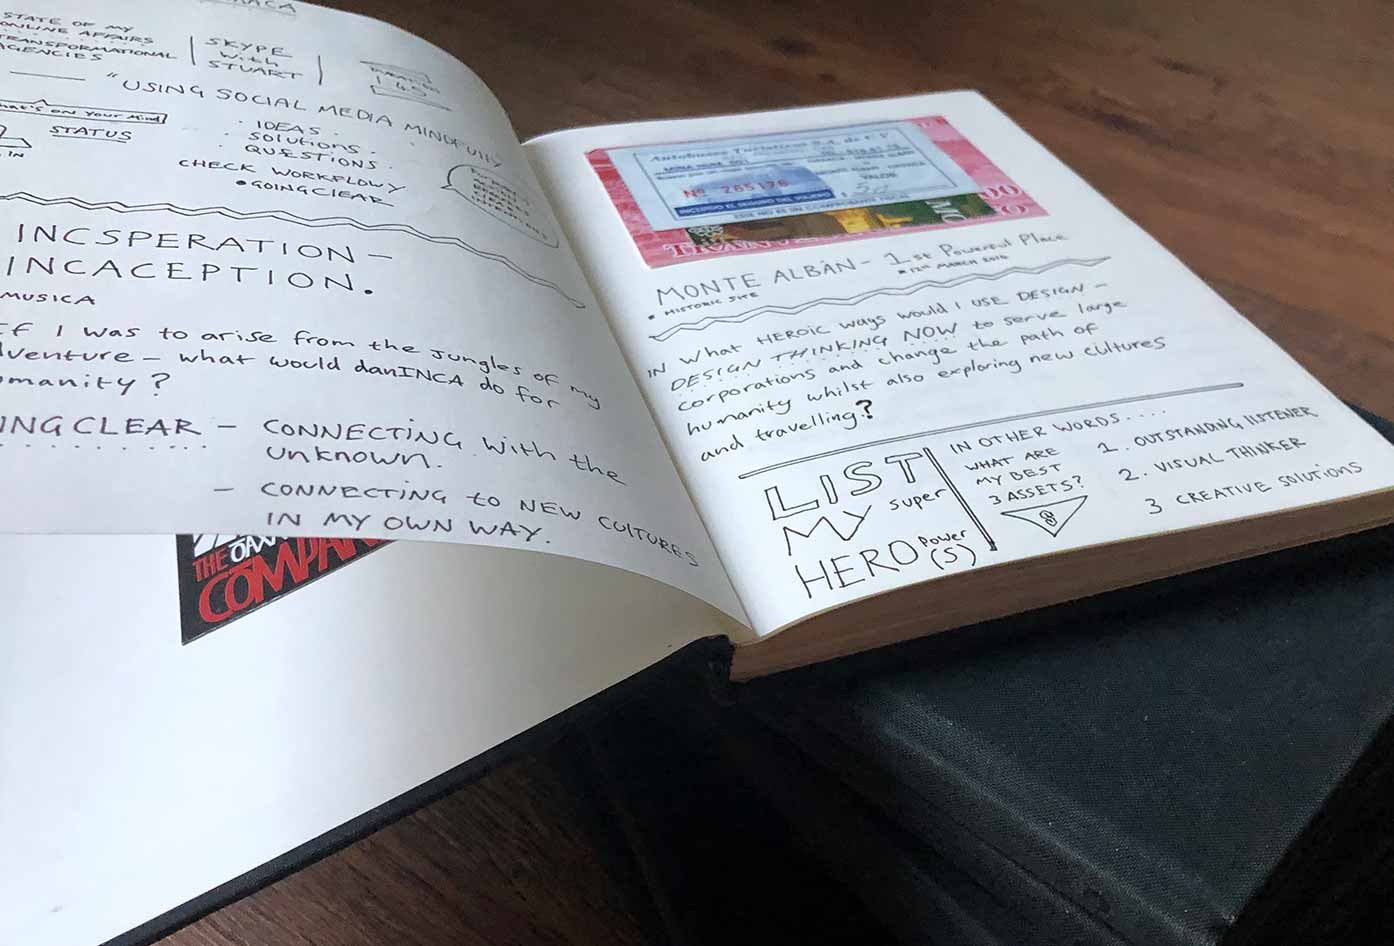 STATE OF MY
ONLINE AFFAIRS
TRANSFORMATIONAL
AGENCIES
SKYPE
with
STUART
"USING SOCIAL MEDIA MINDFULLY
WHAT'S ON YOUR MIND
STATUS
· IDEAS ·
· SOLUTIONS ·
· QUESTIONS ·
CHECK WORKFLOWY
• GOINGCLEAR
INCSPERATION –
INCACEPTION.
MUSICA
If I was to arise from the jungles of my
dventure – what would danINCA do for
manity?
INGCLEAR – CONNECTING with the
unknown.
– CONNECTING to NEW CULTURES
IN MY OWN WAY.
THE OAX
COMPAN
Autobuses Turisticos S.A. de C.V.
VALOR
Nº 265176 $ 50
INCLUIDO EL SEGURO DEL VIAJERO
ESTE NO ES UN COMPROBANTE FISCAL
MONTE ALBÁN – 1st Powerful Place
• HISTORIC SITE • 12th MARCH 2016
IN what HEROIC ways would I USE DESIGN –
DESIGN THINKING NOW to serve large
corporations and change the path of
humanity whilst also exploring new cultures
and travelling?
LIST
MY super
HERO power
(S)
IN OTHER WORDS....
WHAT ARE
MY BEST
3 ASSETS?
8
1. OUTSTANDING LISTENER
2. VISUAL THINKER
3 CREATIVE SOLUTIONS